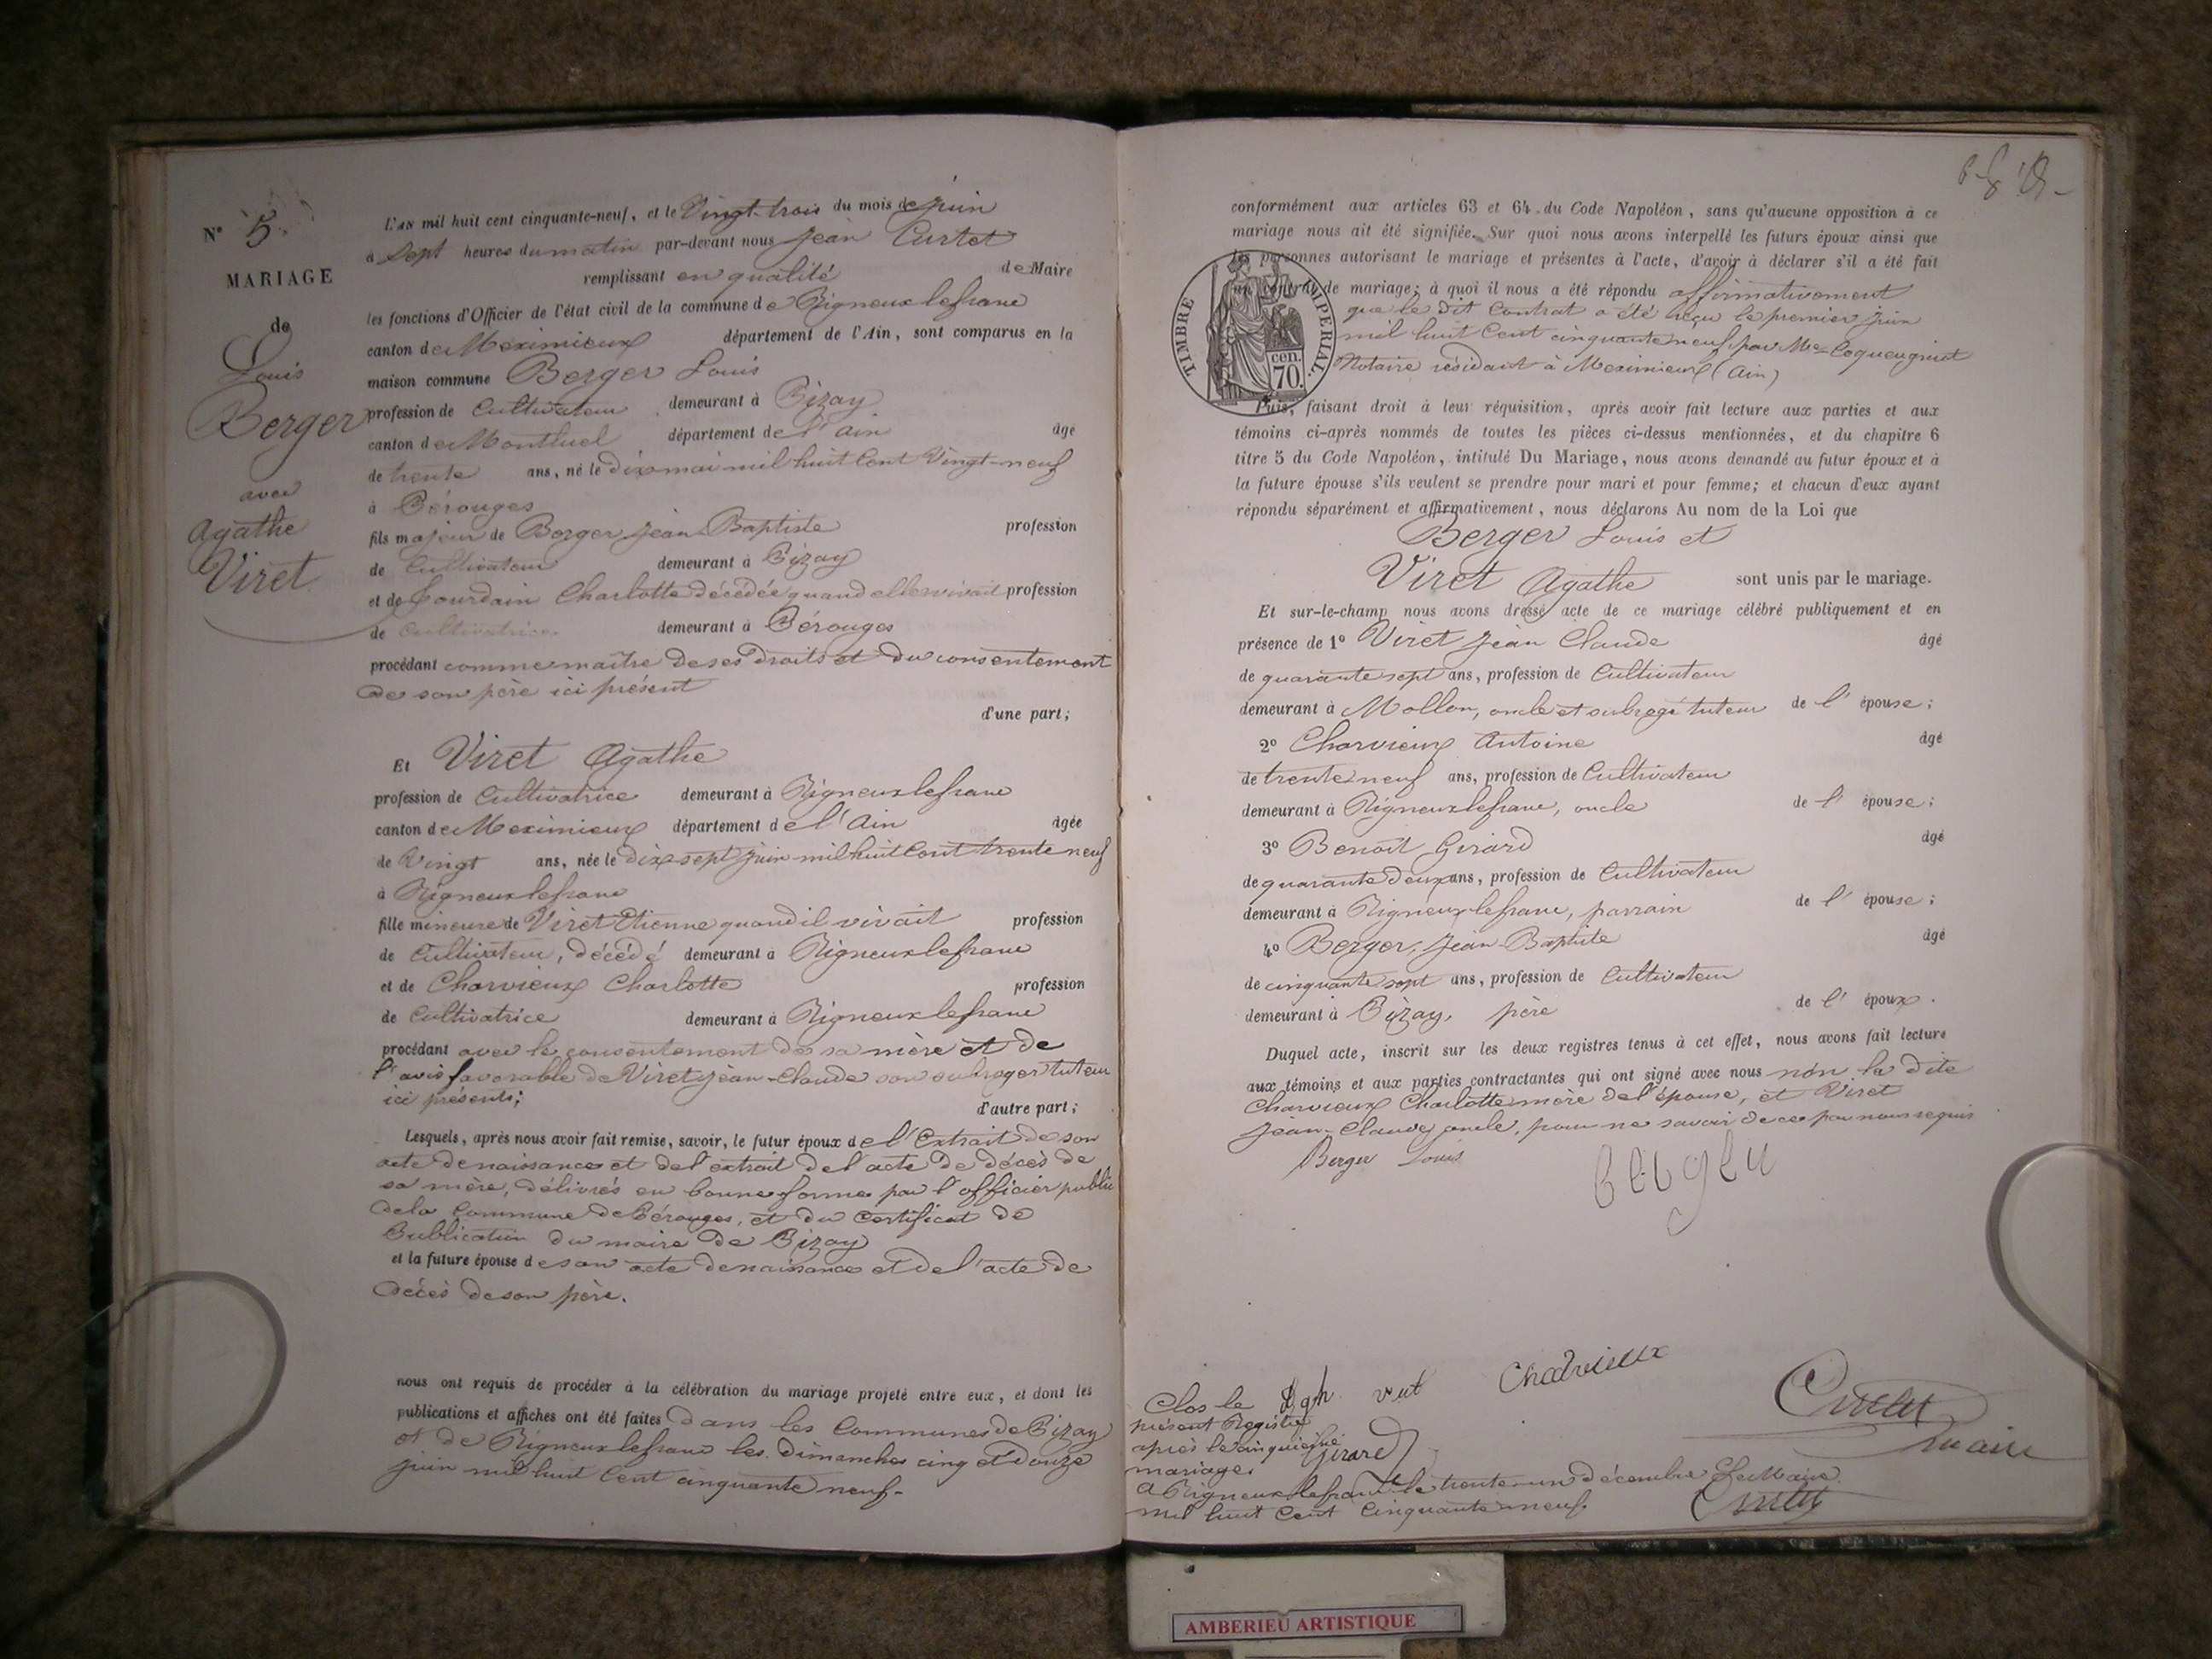 N° 5.
MARIAGE
de
Louis
Berger
avec
Agathe
Viret
L'AN mil huit cent cinquante-neuf, et le Vingt-trois du mois de juin
à Sept heures du matin par-devant nous Jean Curtet
remplissant en qualité de Maire
les fonctions d'Officier de l'état civil de la commune de Rigneux lefranc
canton de Meximieux département de l'Ain, sont comparus en la
maison commune Berger Louis
profession de Cultivateur demeurant à Bizay
canton de Montluel département de l'ain âgé
de trente ans, né le dix mai mil huit Cent Vingt-neuf
à Pérouges
fils majeur de Berger Jean Baptiste profession
de Cultivateur demeurant à Bizay
et de Jourdain Charlotte décédée quand elle vivait profession
de Cultivatrice demeurant à Pérouges
procédant comme maître de ses Droits et Du consentement
de son père ici présent
d'une part;
Et Viret Agathe
profession de Cultivatrice demeurant à Rigneux lefranc
canton de Meximieux département de l'Ain âgée
de Vingt ans, née le dix-sept juin mil huit Cent trente neuf
à Rigneux lefranc
fille mineure de Viret Etienne quand il vivait profession
de Cultivateur, décédé demeurant à Rigneux lefranc
et de Charvieux Charlotte profession
de Cultivatrice demeurant à Rigneux lefranc
procédant avec le consentement de sa mère et de
l'avis favorable de Viret Jean-Claude son subroger tuteur
ici présents; d'autre part;
Lesquels, après nous avoir fait remise, savoir, le futur époux de l'Extrait de son
acte de naissance et de l'extrait de l'acte de décès de
sa mère, délivrés en bonne forme par l'officier public
de la Commune de Pérouges, et du Certificat de
Publication du maire de Bizay
et la future épouse de son acte de naissance et de l'acte de
décès de son père.
nous ont requis de procéder à la célébration du mariage projeté entre eux, et dont les
publications et affiches ont été faites dans les Communes de Bizay
et de Rigneux lefranc les dimanches cinq et Douze
juin mil huit Cent cinquante neuf.
conformément aux articles 63 et 64 du Code Napoléon, sans qu'aucune opposition à ce
mariage nous ait été signifiée. Sur quoi nous avons interpellé les futurs époux ainsi que
les personnes autorisant le mariage et présentes à l'acte, d'avoir à déclarer s'il a été fait
un contrat de mariage; à quoi il nous a été répondu affirmativement
que le dit Contrat a été reçu le premier juin
mil huit Cent cinquante neuf par Me Coqueugniot
Notaire résidant à Meximieux (Ain)
TIMBRE IMPERIAL
cen. 70.
Puis, faisant droit à leur réquisition, après avoir fait lecture aux parties et aux
témoins ci-après nommés de toutes les pièces ci-dessus mentionnées, et du chapitre 6
titre 5 du Code Napoléon, intitulé Du Mariage, nous avons demandé au futur époux et à
la future épouse s'ils veulent se prendre pour mari et pour femme; et chacun d'eux ayant
répondu séparément et affirmativement, nous déclarons Au nom de la Loi que
Berger Louis et
Viret Agathe sont unis par le mariage.
Et sur-le-champ nous avons dressé acte de ce mariage célébré publiquement et en
présence de 1° Viret Jean Claude âgé
de quarante sept ans, profession de Cultivateur
demeurant à Mollon, oncle et subrogé tuteur de l'épouse;
2° Charvieux Antoine âgé
de trente neuf ans, profession de Cultivateur
demeurant à Rigneux lefranc, oncle de l'épouse;
3° Benoit Girard âgé
de quarante deux ans, profession de Cultivateur
demeurant à Rigneux lefranc, parrain de l'épouse;
4° Berger, Jean-Baptiste âgé
de cinquante sept ans, profession de Cultivateur
demeurant à Bizay, père de l'époux.
Duquel acte, inscrit sur les deux registres tenus à cet effet, nous avons fait lecture
aux témoins et aux parties contractantes qui ont signé avec nous non la dite
Charvieux Charlotte mère de l'épouse, et Viret
Jean-Claude, oncle, pour ne savoir de ce par nous requis
Berger Louis berger
Charvieux
Curtet
maire
Girard
Clos le
présent Registre
après le cinquième
mariage.
A Rigneux lefranc le trente-un décembre Le Maire
mil huit Cent Cinquante neuf. Curtet
AMBERIEU ARTISTIQUE